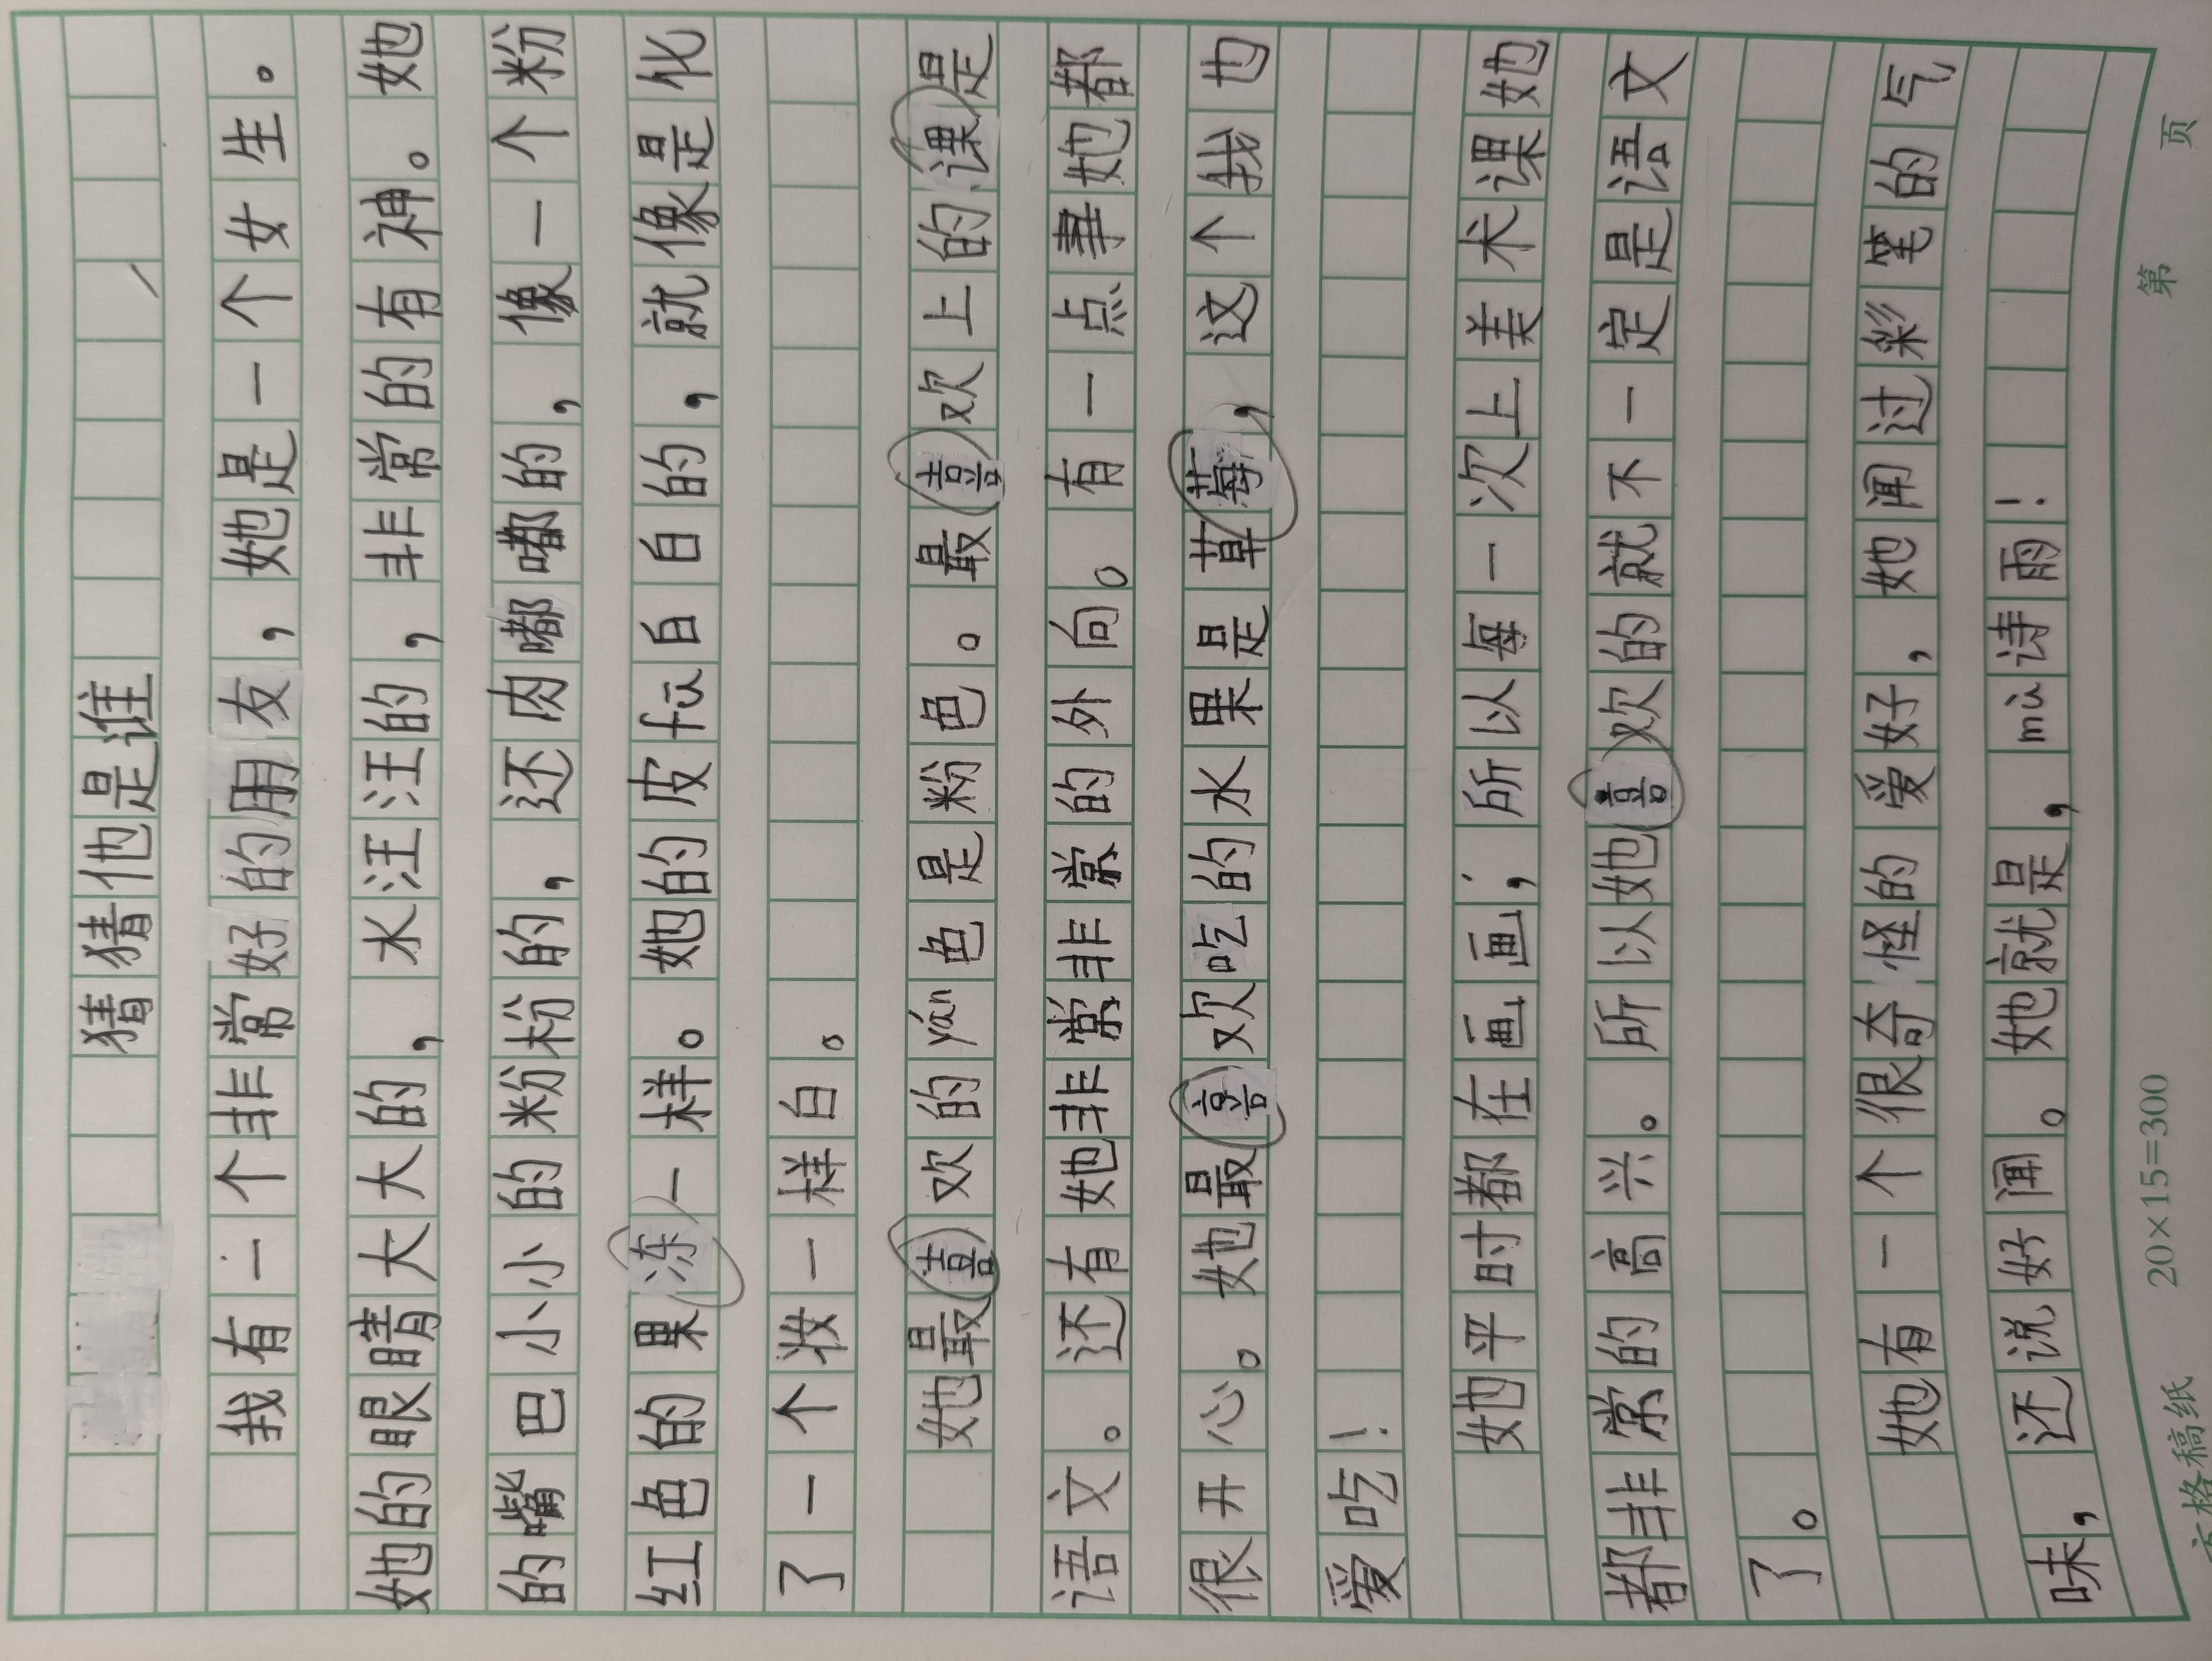 猜猜他是谁
我有一个非常好的用友，她是一个女生。
她的眼睛大大的，水汪汪的，非常的有神。她
的嘴巴小小的粉粉的，还肉嘟嘟的，像一个粉
红色的果冻一样。她的皮fū白白的，就像是化
了一个妆一样白。
她最喜欢的yán色是粉色。最喜欢上的课是
语文。还有她非常非常的外向。有一点事她都
很开心。她最喜欢吃的水果是草莓，这个我也
爱吃！
她平时都在画画，所以每一次上美术课她
都非常的高兴。所以她喜欢的就不一定是语文
了。
她有一个很奇怪的爱好，她闻过彩笔的气
味，还说好闻。她就是，mù诗雨！
方格稿纸 20×15=300 第 页